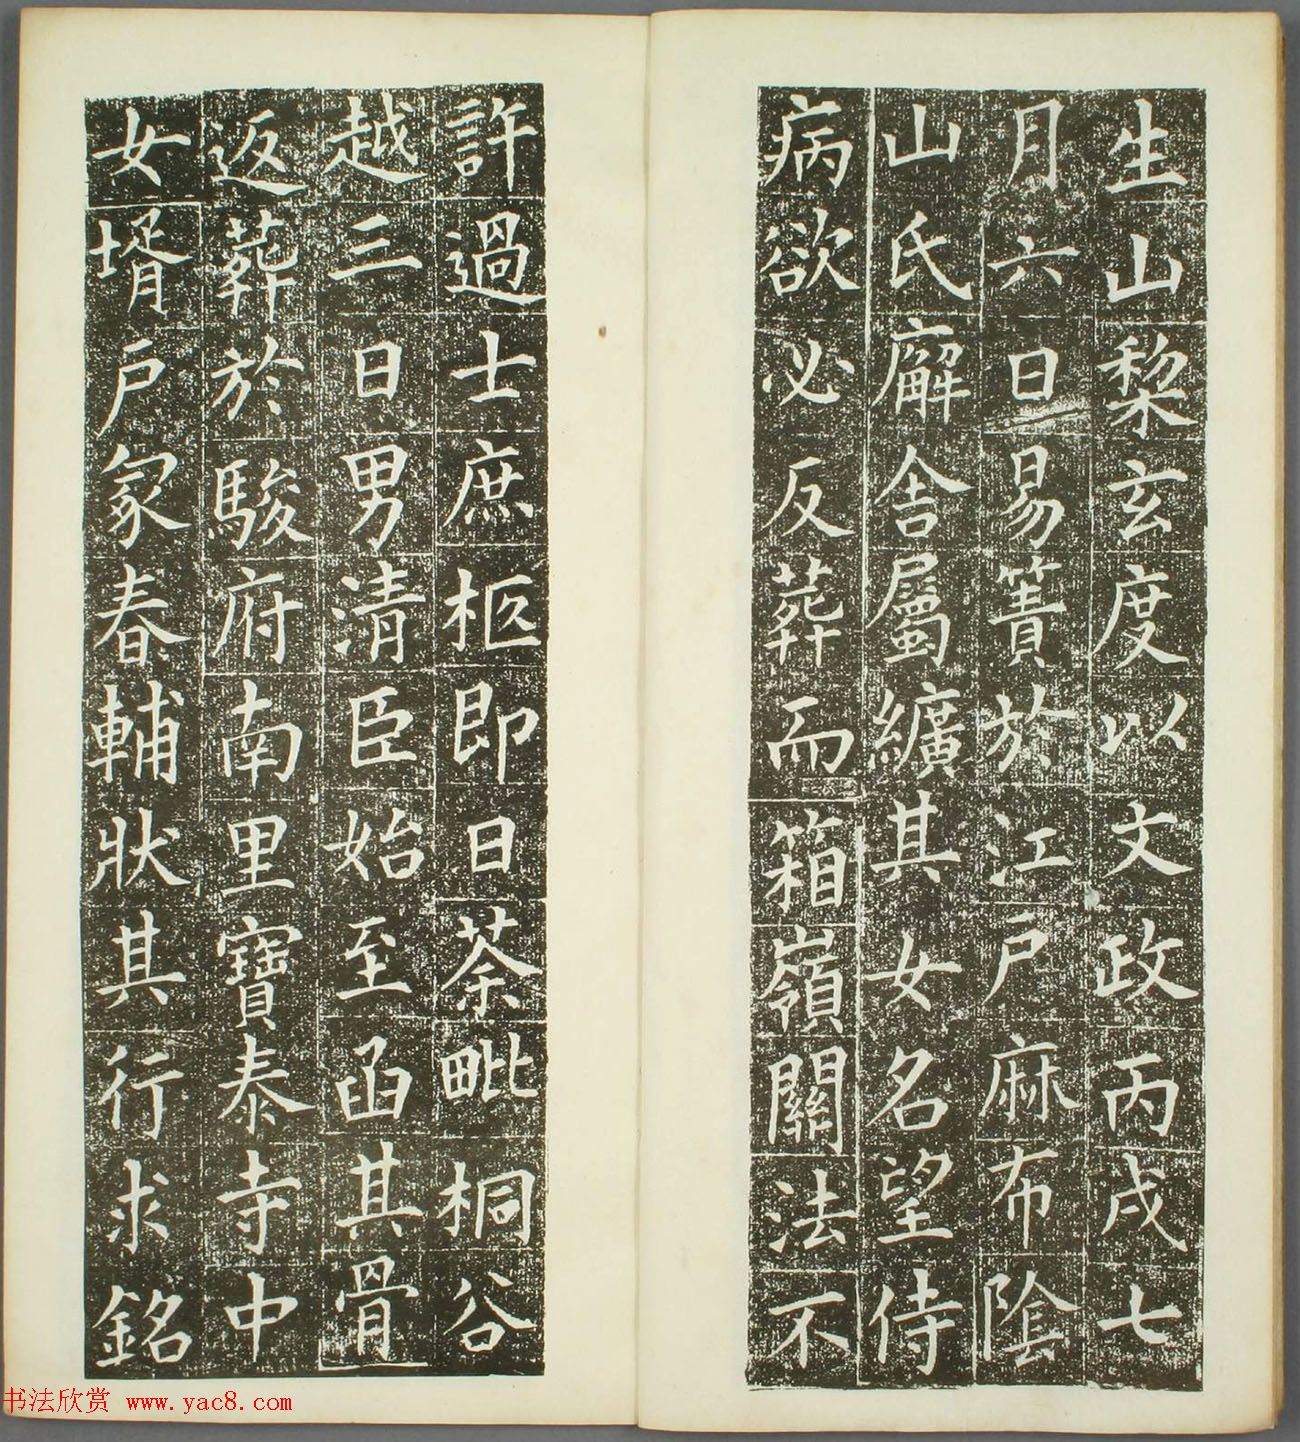 生山棃玄度以文政丙戌七
月六日易簀於江戸麻布陰
山氏廨舎屬纊其女名望侍
病欲必反葬而箱嶺關法不
許過士庶柩即日荼毗桐谷
越三日男清臣始至函其骨
返葬於駿府南里寶泰寺中
女壻戸冢春輔狀其行求銘
书法欣赏 www.yac8.com